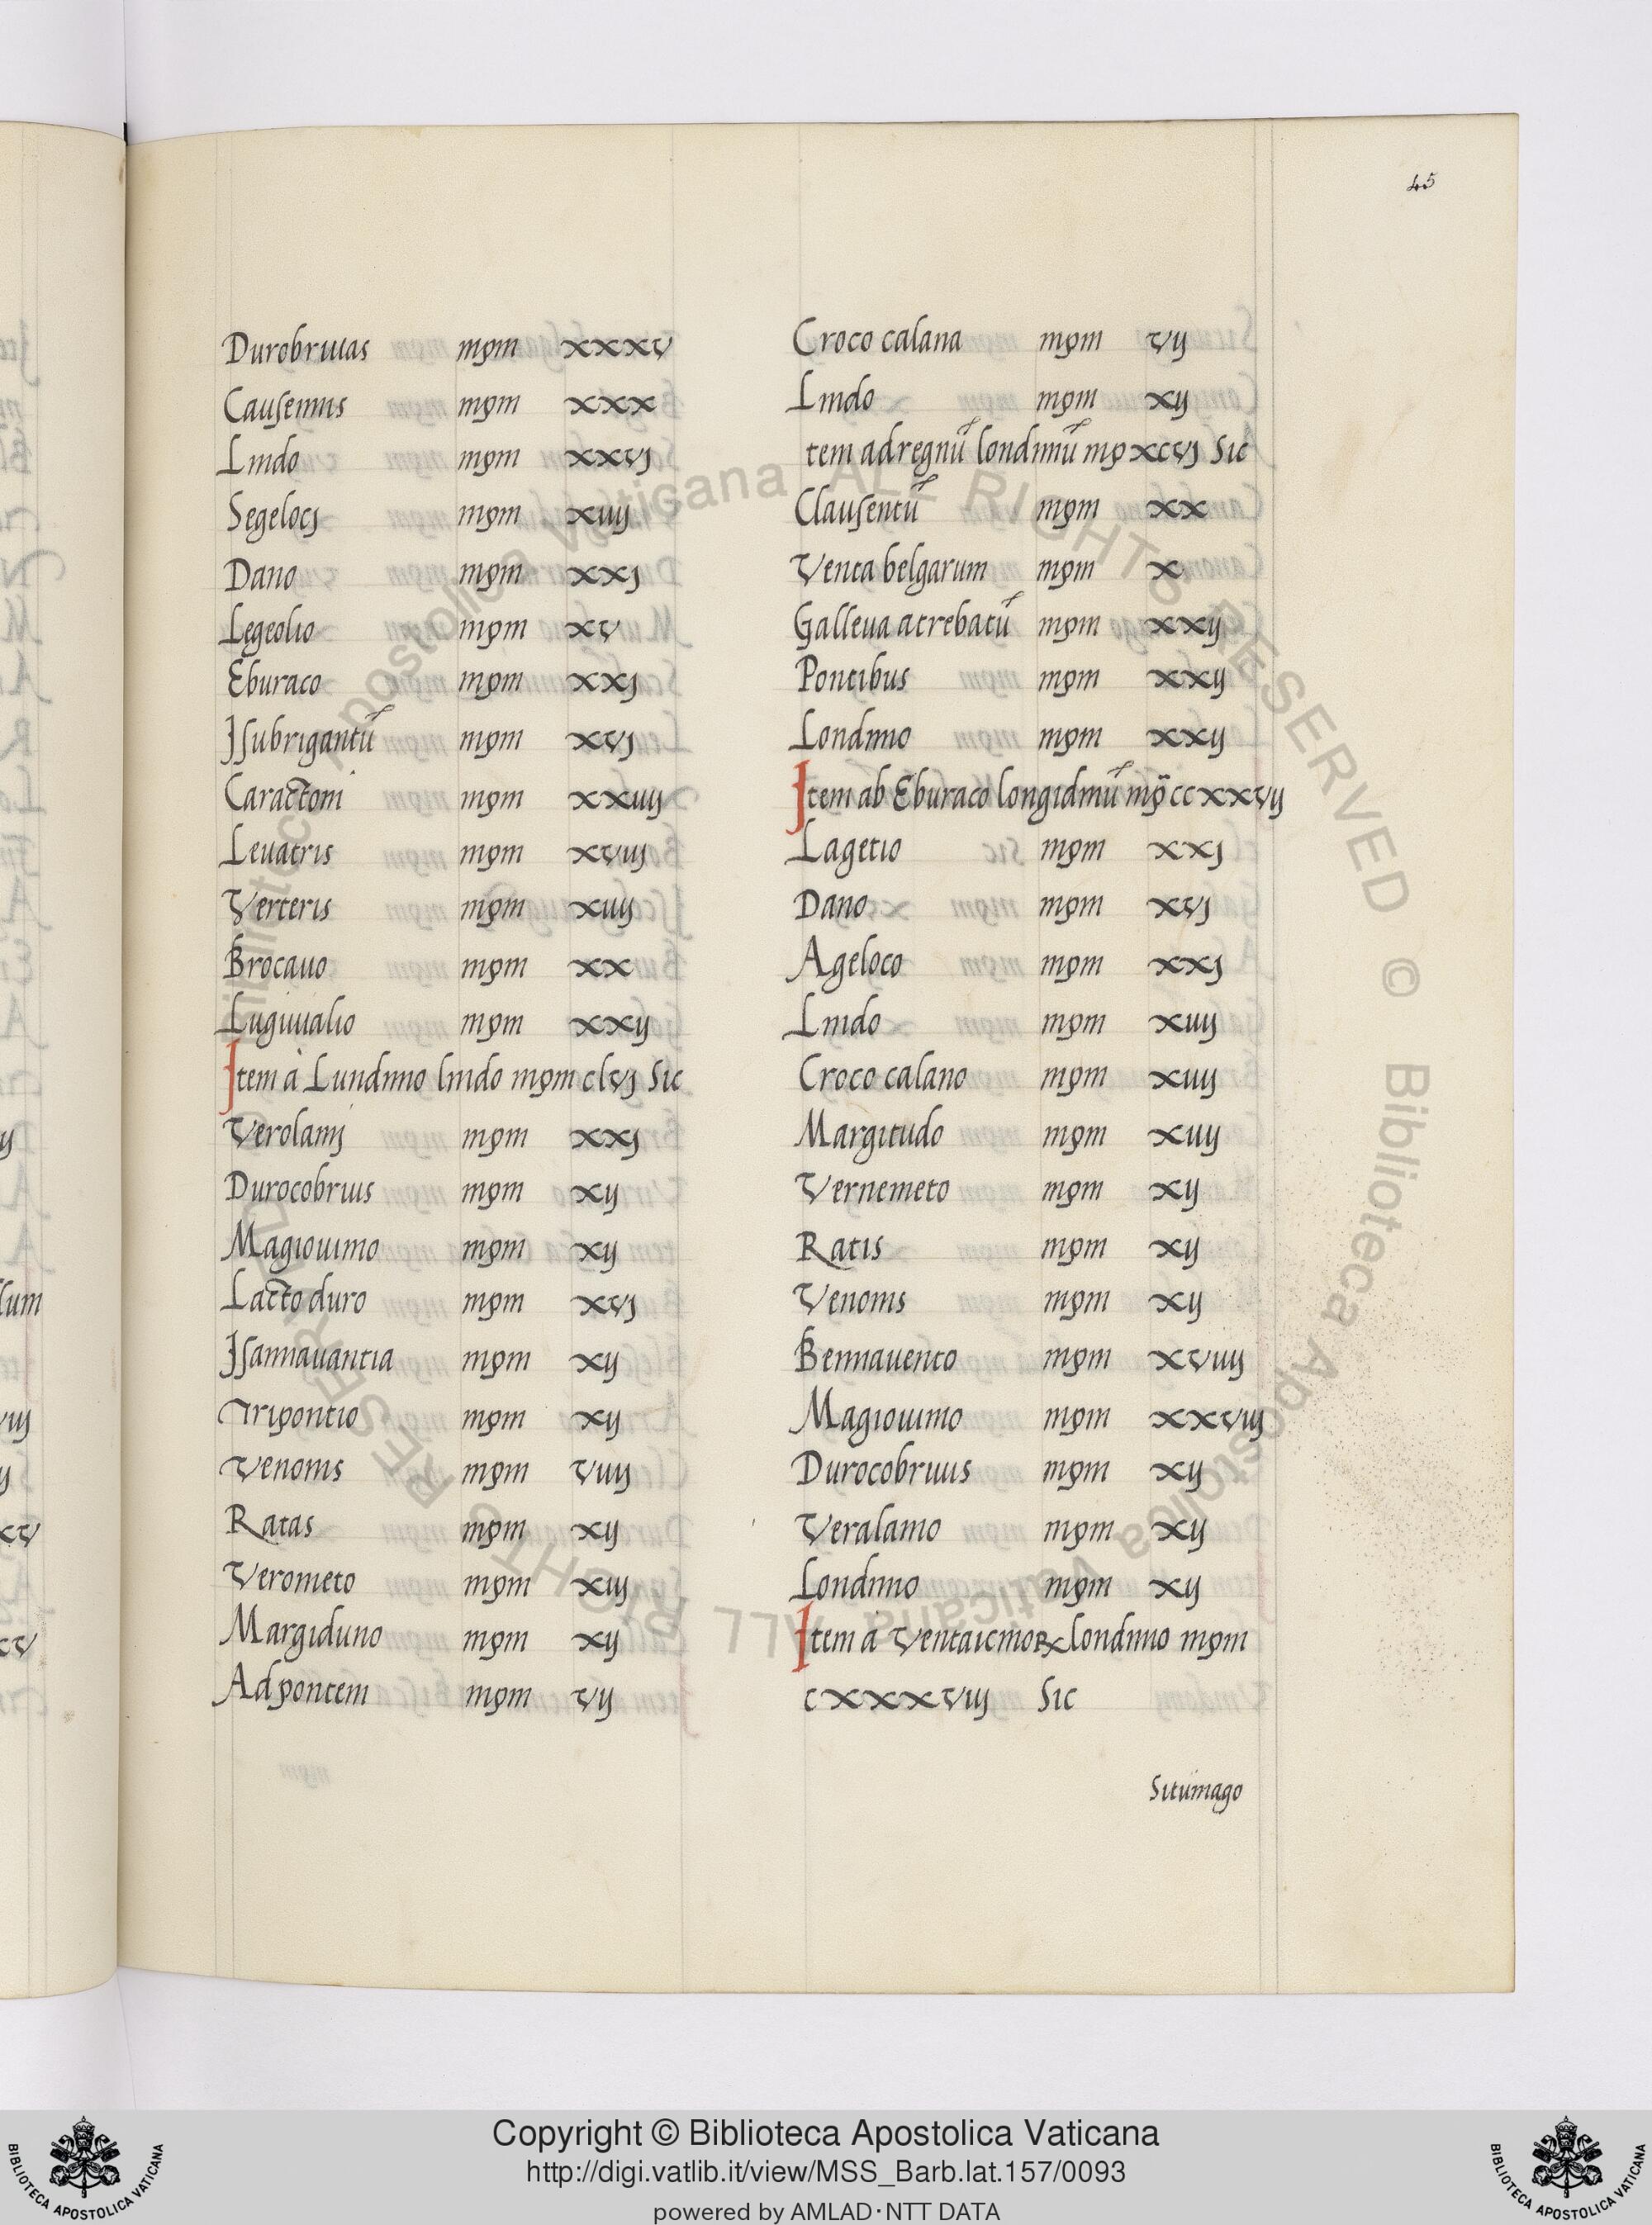 45
Durobriuas mpm xxxv
Causennis mpm xxx
Lindo mpm xxvj
Segelocj mpm xiiij
Dano mpm xxj
Legeolio mpm xv
Eburaco mpm xxj
Jsubrigantũ mpm xvj
Caractoni mpm xxiiij
Leuatris mpm xviij
Verteris mpm xiiij
Brocauo mpm xx
Luguualio mpm xxij
Jtem à Lundinio lindo mpm clvj Sic
Verolamj mpm xxj
Durocobrius mpm xij
Magiouinio mpm xij
Lactoduro mpm xvj
Jsannauantia mpm xij
Tripontio mpm xij
Venonis mpm viiij
Ratas mpm xij
Verometo mpm xiij
Margiduno mpm xij
Adpontem mpm vij
Croco calana mpm vij
Lindo mpm xij
tem adregnũ londiniũ mp xcvj Sic
Clausentũ mpm xx
Venta belgarum mpm x
Galleua atrebatũ mpm xxij
Pontibus mpm xxij
Londinio mpm xxij
Jtem ab Eburaco longidiniũ mp ccxxvij
Lagetio mpm xxj
Dano mpm xvj
Ageloco mpm xxj
Lindo mpm xiiij
Croco calano mpm xiiij
Margitudo mpm xiiij
Vernemeto mpm xij
Ratis mpm xij
Venonis mpm xij
Bennauento mpm xviiij
Magiouinio mpm xxviij
Durocobruus mpm xij
Veralamo mpm xij
Londinio mpm xij
Item à Ventaicinoꝝ londinio mpm
cxxxviij Sic
Situmago
Copyright © Biblioteca Apostolica Vaticana
http://digi.vatlib.it/view/MSS_Barb.lat.157/0093
powered by AMLAD·NTT DATA
BIBLIOTECA APOSTOLICA VATICANA
BIBLIOTECA APOSTOLICA VATICANA